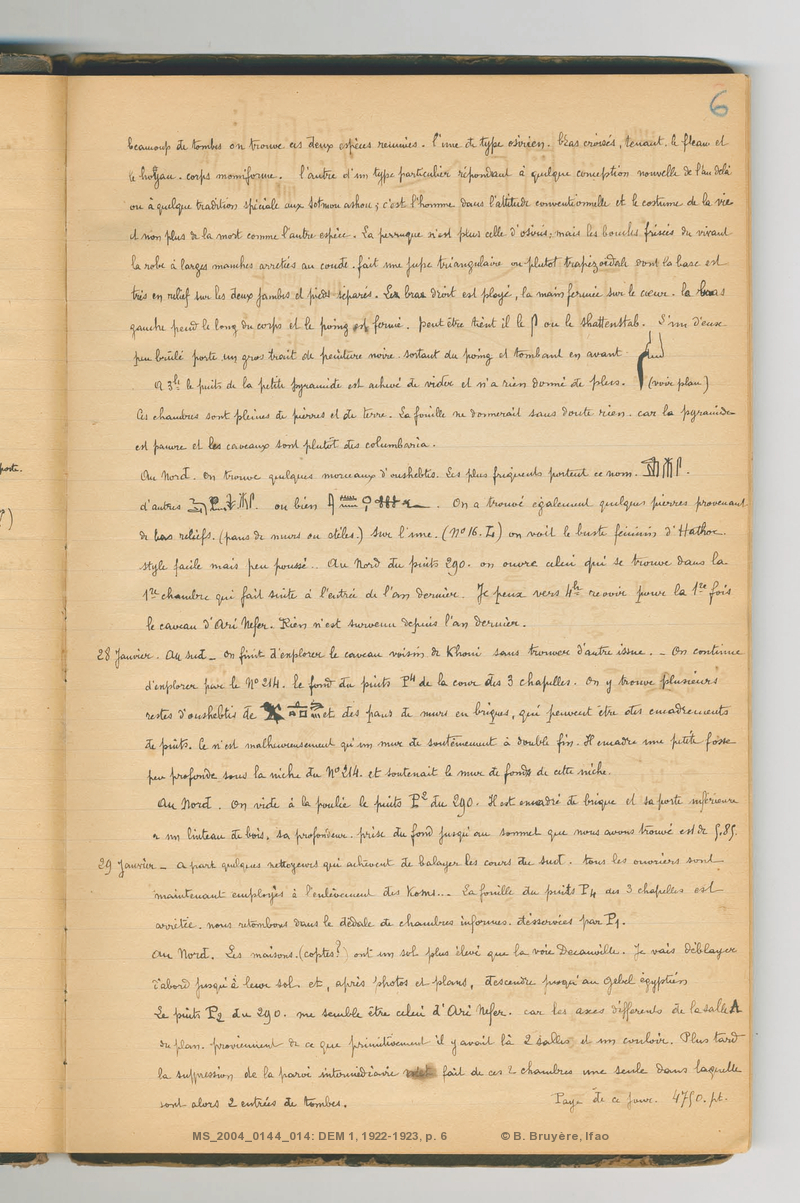 6
beaucoup de tombes on trouve ces deux espèces réunies. l'une de type osirien. bras croisés, tenant le fleau et
le hoyau. corps momiforme. l'autre d'un type particulier répondant à quelque conception nouvelle de l'au delà
ou à quelque tradition spéciale aux Sotmou ashou ; c'est l'homme dans l'attitude conventionnelle et le costume de la vie
et non plus de la mort comme l'autre espèce. La perruque n'est plus celle d'osiris; mais les boucles frisées du vivant
la robe à larges manches arretées au coude. fait une jupe triangulaire ou plutot trapézoidale dont la base est
très en relief sur les deux jambes et pieds séparés. Le bras droit est ployé, la main fermée sur le cœur. le bras
gauche pend le long du corps et le poing est fermé. Peut être tient il le ou le shattenstab. L'un d'eux
peu brûlé porte un gros trait de peinture noire. sortant du poing et tombant en avant
A 3h le puits de la petite pyramide est achevé de vider et n'a rien donné de plus. (voir plan)
Ces chambres sont pleines de pierres et de terre. La fouille ne donnerait sans doute rien. car la pyramide
est pauvre et les caveaux sont plutot des columbaria.
Au Nord. On trouve quelques morceaux d'oushebtis. Les plus frequents portent ce nom.
d'autres ou bien . On a trouvé également quelques pierres provenant
de bas reliefs. (pans de murs ou stèles.) Sur l'une. (No 16. ) on voit le buste féminin d'Hathor.
style facile mais peu poussé.. Au Nord du puits 290. on ouvre celui qui se trouve dans la
1re chambre qui fait suite à l'entrée de l'an dernier. Je peux vers 4h revoir pour la 1re fois
le caveau d'Ari Nefer. Rien n'est survenu depuis l'an dernier.
28 Janvier. Au sud _ On finit d'explorer le caveau voisin de Khoui sans trouver d'autre issue. _ On continue
d'explorer par le No 214. le fond du puits P4 de la cour des 3 chapelles. On y trouve plusieurs
restes d'oushebtis de et des pans de murs en briques, qui peuvent être des encadrements
de puits. Ce n'est malheureusement qu'un mur de soutènement à double fin. Il encadre une petite fosse
peu profonde sous la niche du No 214. et soutenait le mur de fond de cette niche.
Au Nord. On vide à la poulie le puits P2 du 290. Il est encadré de brique et sa porte inférieure
a un linteau de bois. sa profondeur. prise du fond jusqu'au sommet que nous avons trouvé est de 5,85.
29 Janvier _ A part quelques nettoyeurs qui achèvent de balayer les cours du sud. tous les ouvriers sont
maintenant employés à l'enlèvement des Koms... La fouille du puits P4 des 3 chapelles est
arrêtée. nous retombons dans le dédale de chambres informes. desservies par P1.
Au Nord. Les maisons. (coptes?) ont un sol plus élevé que la voie Decauville. Je vais déblayer
d'abord jusqu'à leur sol. et, après photos et plans, descendre jusqu'au gebel égyptien
Le puits P2 du 290. me semble être celui d'Ari Nefer. car les axes différents de la salle A
du plan. proviennent de ce que primitivement il y avait là 2 salles et un couloir. Plus tard
la suppression de la paroi intermédiaire fait de ces 2 chambres une seule dans laquelle
sont alors 2 entrées de tombes. Paye de ce jour. 4750. pt.
MS_2004_0144_014: DEM 1, 1922-1923, p. 6 © B. Bruyère, Ifao